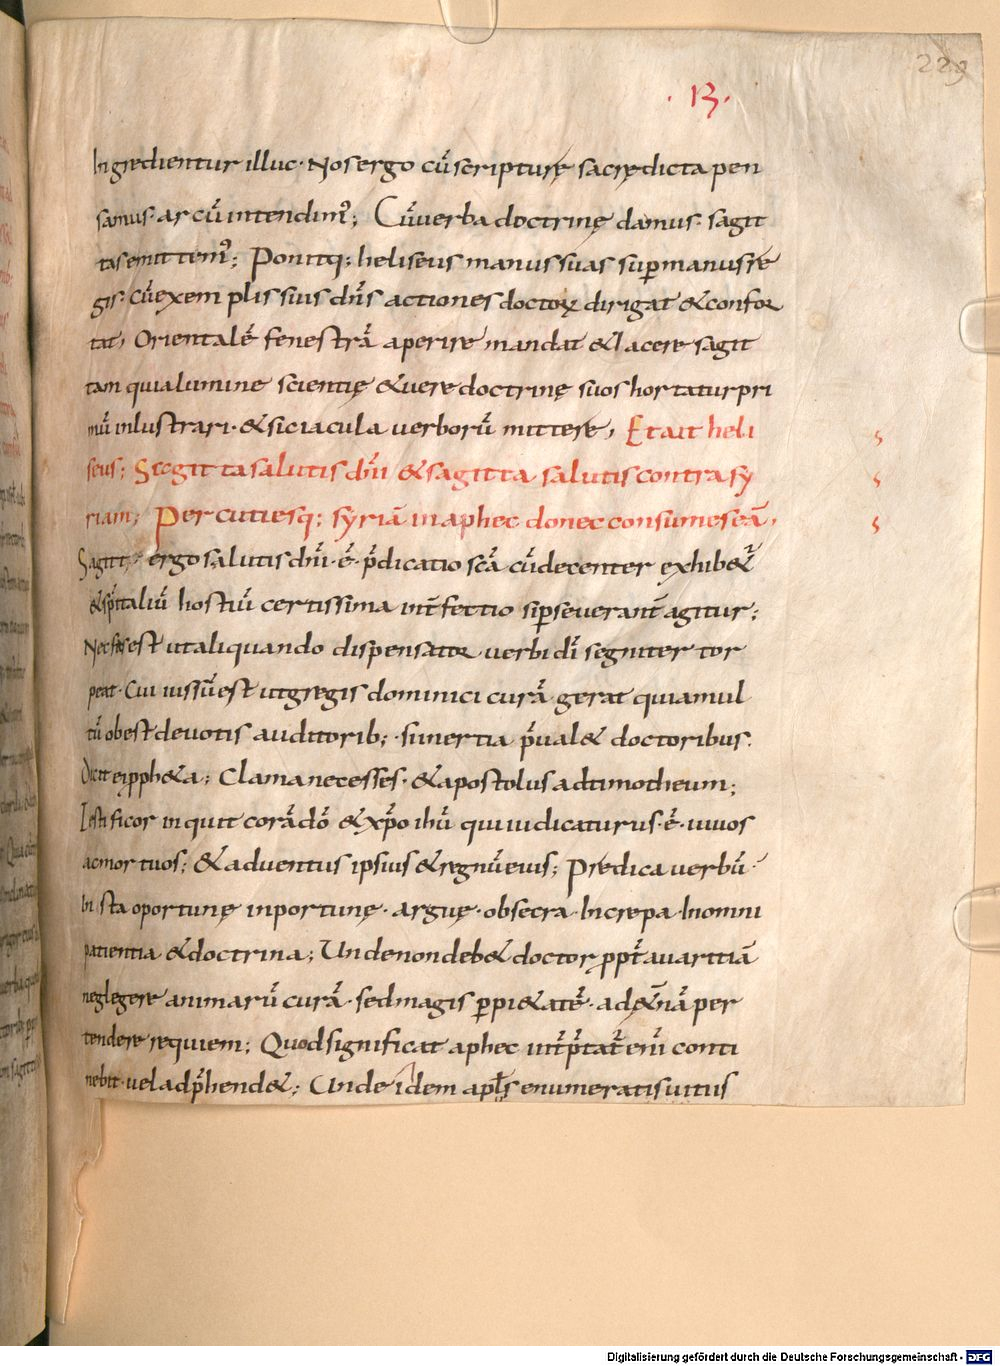 229
.B.
Ingredientur illuc· Nos ergo cū scripturę sacrę dicta pen
samus· arcū intendimꝰ; Cū verba doctrinę damus· sagit
tas emittimꝰ; Ponitq; heliseus manus suas super manus re
gis· Cū exemplis suis dn̄s actiones doctoꝝ dirigat & confor
tat, Orientalē fenestrā aperire mandat & iacere sagit
tam quia lumine scientię & verę doctrinę suos hortatur pri
mū inlustrari· & sic iacula verborū mittere, Et ait heli
seus; Sagitta salutis dn̄i & sagitta salutis contra sy
riam; Percutiesq; syriā in aphec donec consumes eā,
Sagitta ergo salutis dn̄i· ē· p̄dicatio scā cū decenter exhib&ur
& sp̄italiū hostiū certissima int̄fectio si ꝑseverant̄ agitur;
Nec fas est ut aliquando dispensator verbi dī segniter tor
peat· Cui iussū est ut gregis dominici curā gerat quia mul
tū obest devotis auditorib; si inertia p̄val& doctoribus.
Dicit ei ꝓph&a; Clama ne cesses· & apostolus ad timotheum;
Testificor inquit corā dō & xp̄o ihū qui iudicaturus· ē· vivos
ac mortuos; & adventus ipsius & regnū eius; Predica verbū·
Insta oportunę inportunę· arguę· obsecra· Increpa· In omni
patientia & doctrina; Unde non deb& doctor ꝓpt̄ avaritiā
neglegere animarū curā· sed magis ꝑ pi&atē· ad &̄nā per
tendere requiem; Quod significat aphec int̄p̄tat̄ enī conti
nebit· vel adp̄hend&; Unde idem apl̄s enumeratis virtus
Digitalisierung gefördert durch die Deutsche Forschungsgemeinschaft - DFG